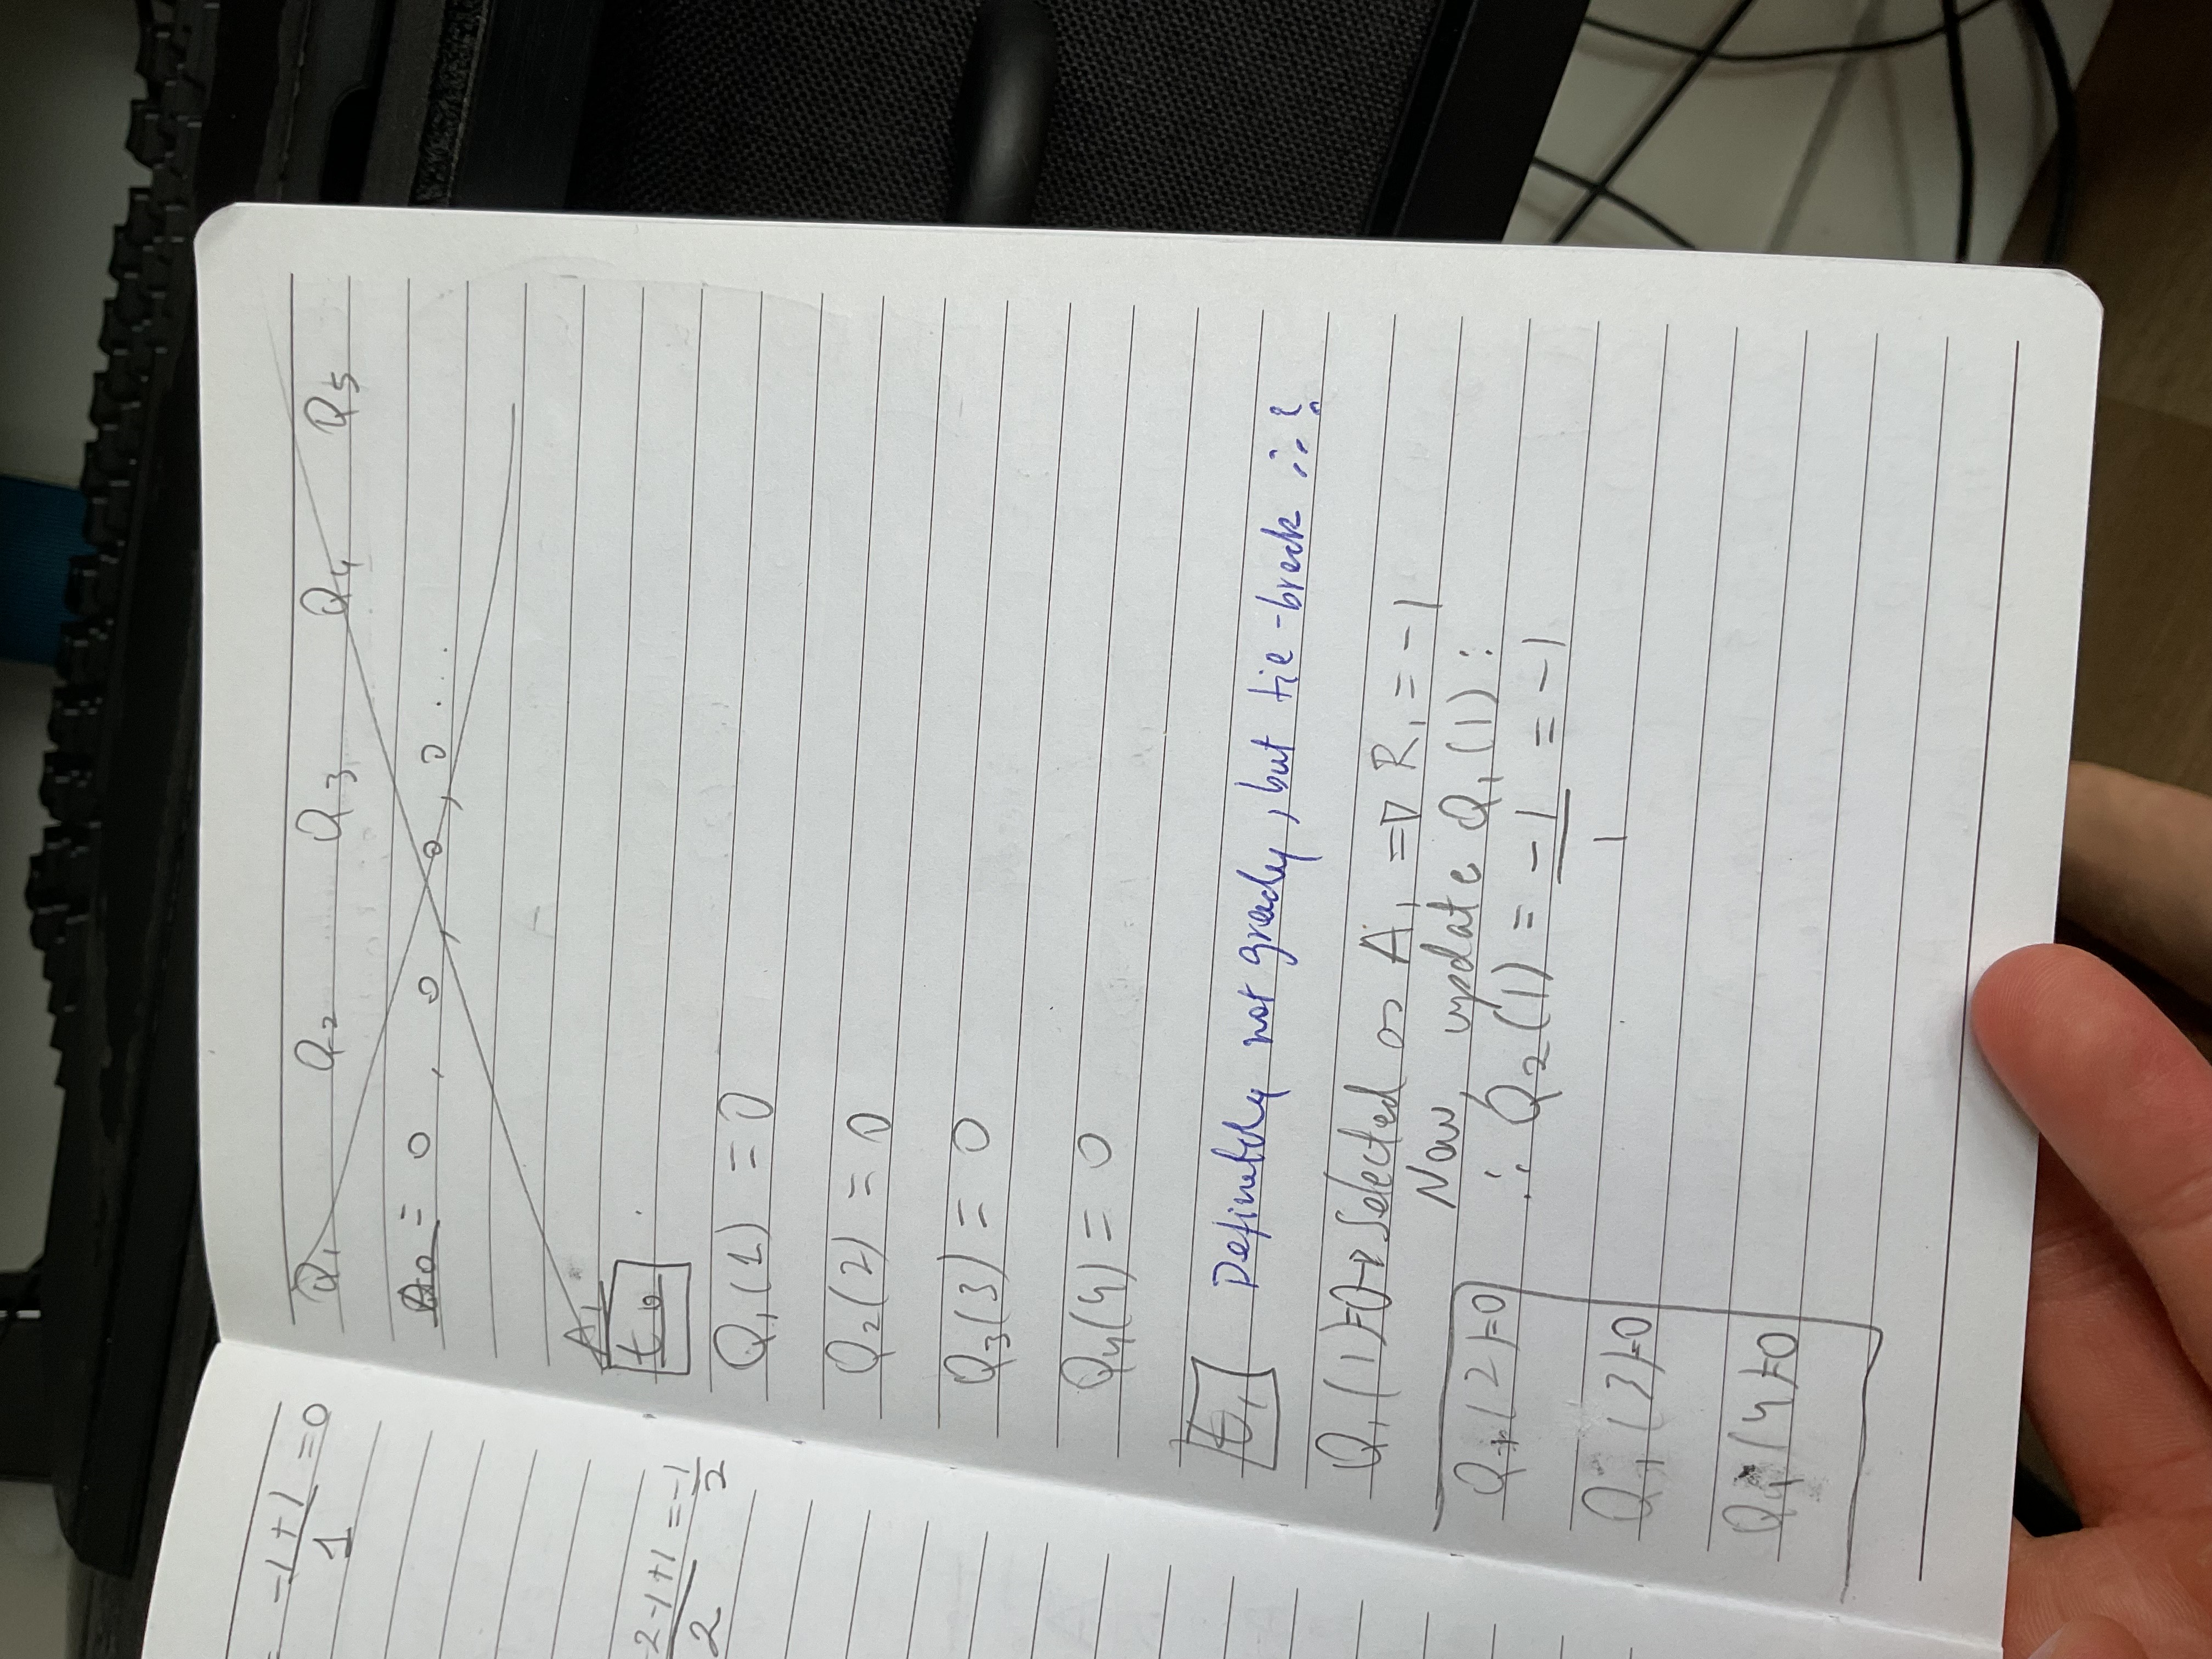 = -1+1 / 1 = 0
-2-1+1 / 2 = -1/2
Q₁ Q₂ Q₃ Q₄ Q₅
A₀ = 0 , 0 , 0 , 0 ...
A₁
t₀
Q₁(1) = 0
Q₂(2) = 0
Q₃(3) = 0
Q₄(4) = 0
t₁ Definetely not gready, but tie-break
Q₁(1)=0→ Selected as A₁ => R₁ = -1
Now, update Q₁(1) :
Q₁(2)=0 ∴ Q₂(1) = -1/1 = -1
Q₁(3)=0
Q₁(4)=0